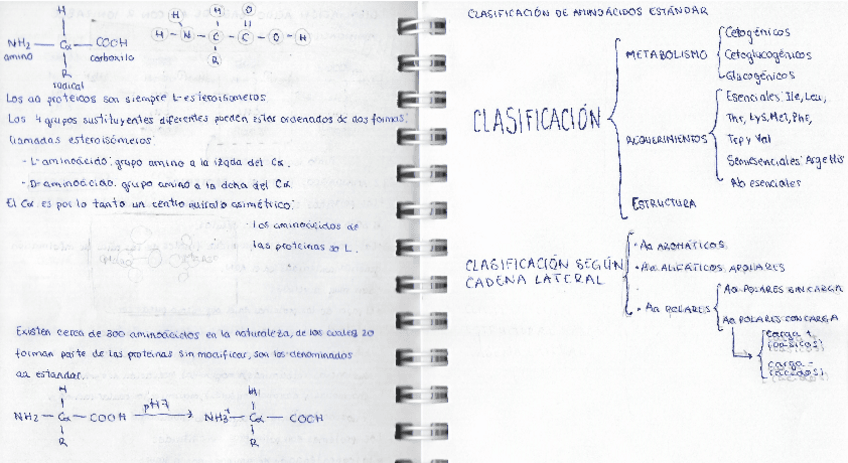 H
NH2 — Cα — COOH
amino carboxilo
R
radical
H H O
H N C C O H
R
Los aa proteicos son siempre L-esteroisomeros
Los 4 grupos sustituyentes diferentes pueden estar ordenados de dos formas:
llamadas esteroisómeros:
- L-aminoácido: grupo amino a la izqda del Cα.
- D-aminoácido. grupo amino a la dcha del Cα
El Cα es por lo tanto un centro quiralo asimétrico:
· Los aminoácidos de
las proteinas so L.
Existen cerca de 300 aminoácidos en la naturaleza, de los cuales 20
forman parte de las proteinas sin modificar, son los denominados
aa estandar.
H H
NH2 — Cα — COOH pH7 NH3+ — Cα — COOH
R R
CLASIFICACIÓN DE AMINOÁCIDOS ESTÁNDAR
CLASIFICACIÓN
METABOLISMO
Cetogénicos
Cetoglucogénicos
Glucogénicos
REQUERIMIENTOS
Esenciales: Ile, Leu,
Thr, Lys, Met, Phe,
Trp y Val
Semiesenciales: Arg e His
No esenciales
ESTRUCTURA
CLASIFICACIÓN SEGÚN
CADENA LATERAL
· Aa AROMÁTICOS
· Aa ALIFÁTICOS APOLARES
· Aa POLARES
Aa POLARES SIN CARGA
Aa POLARES CON CARGA
carga +
(básicos)
carga -
(ácidos)